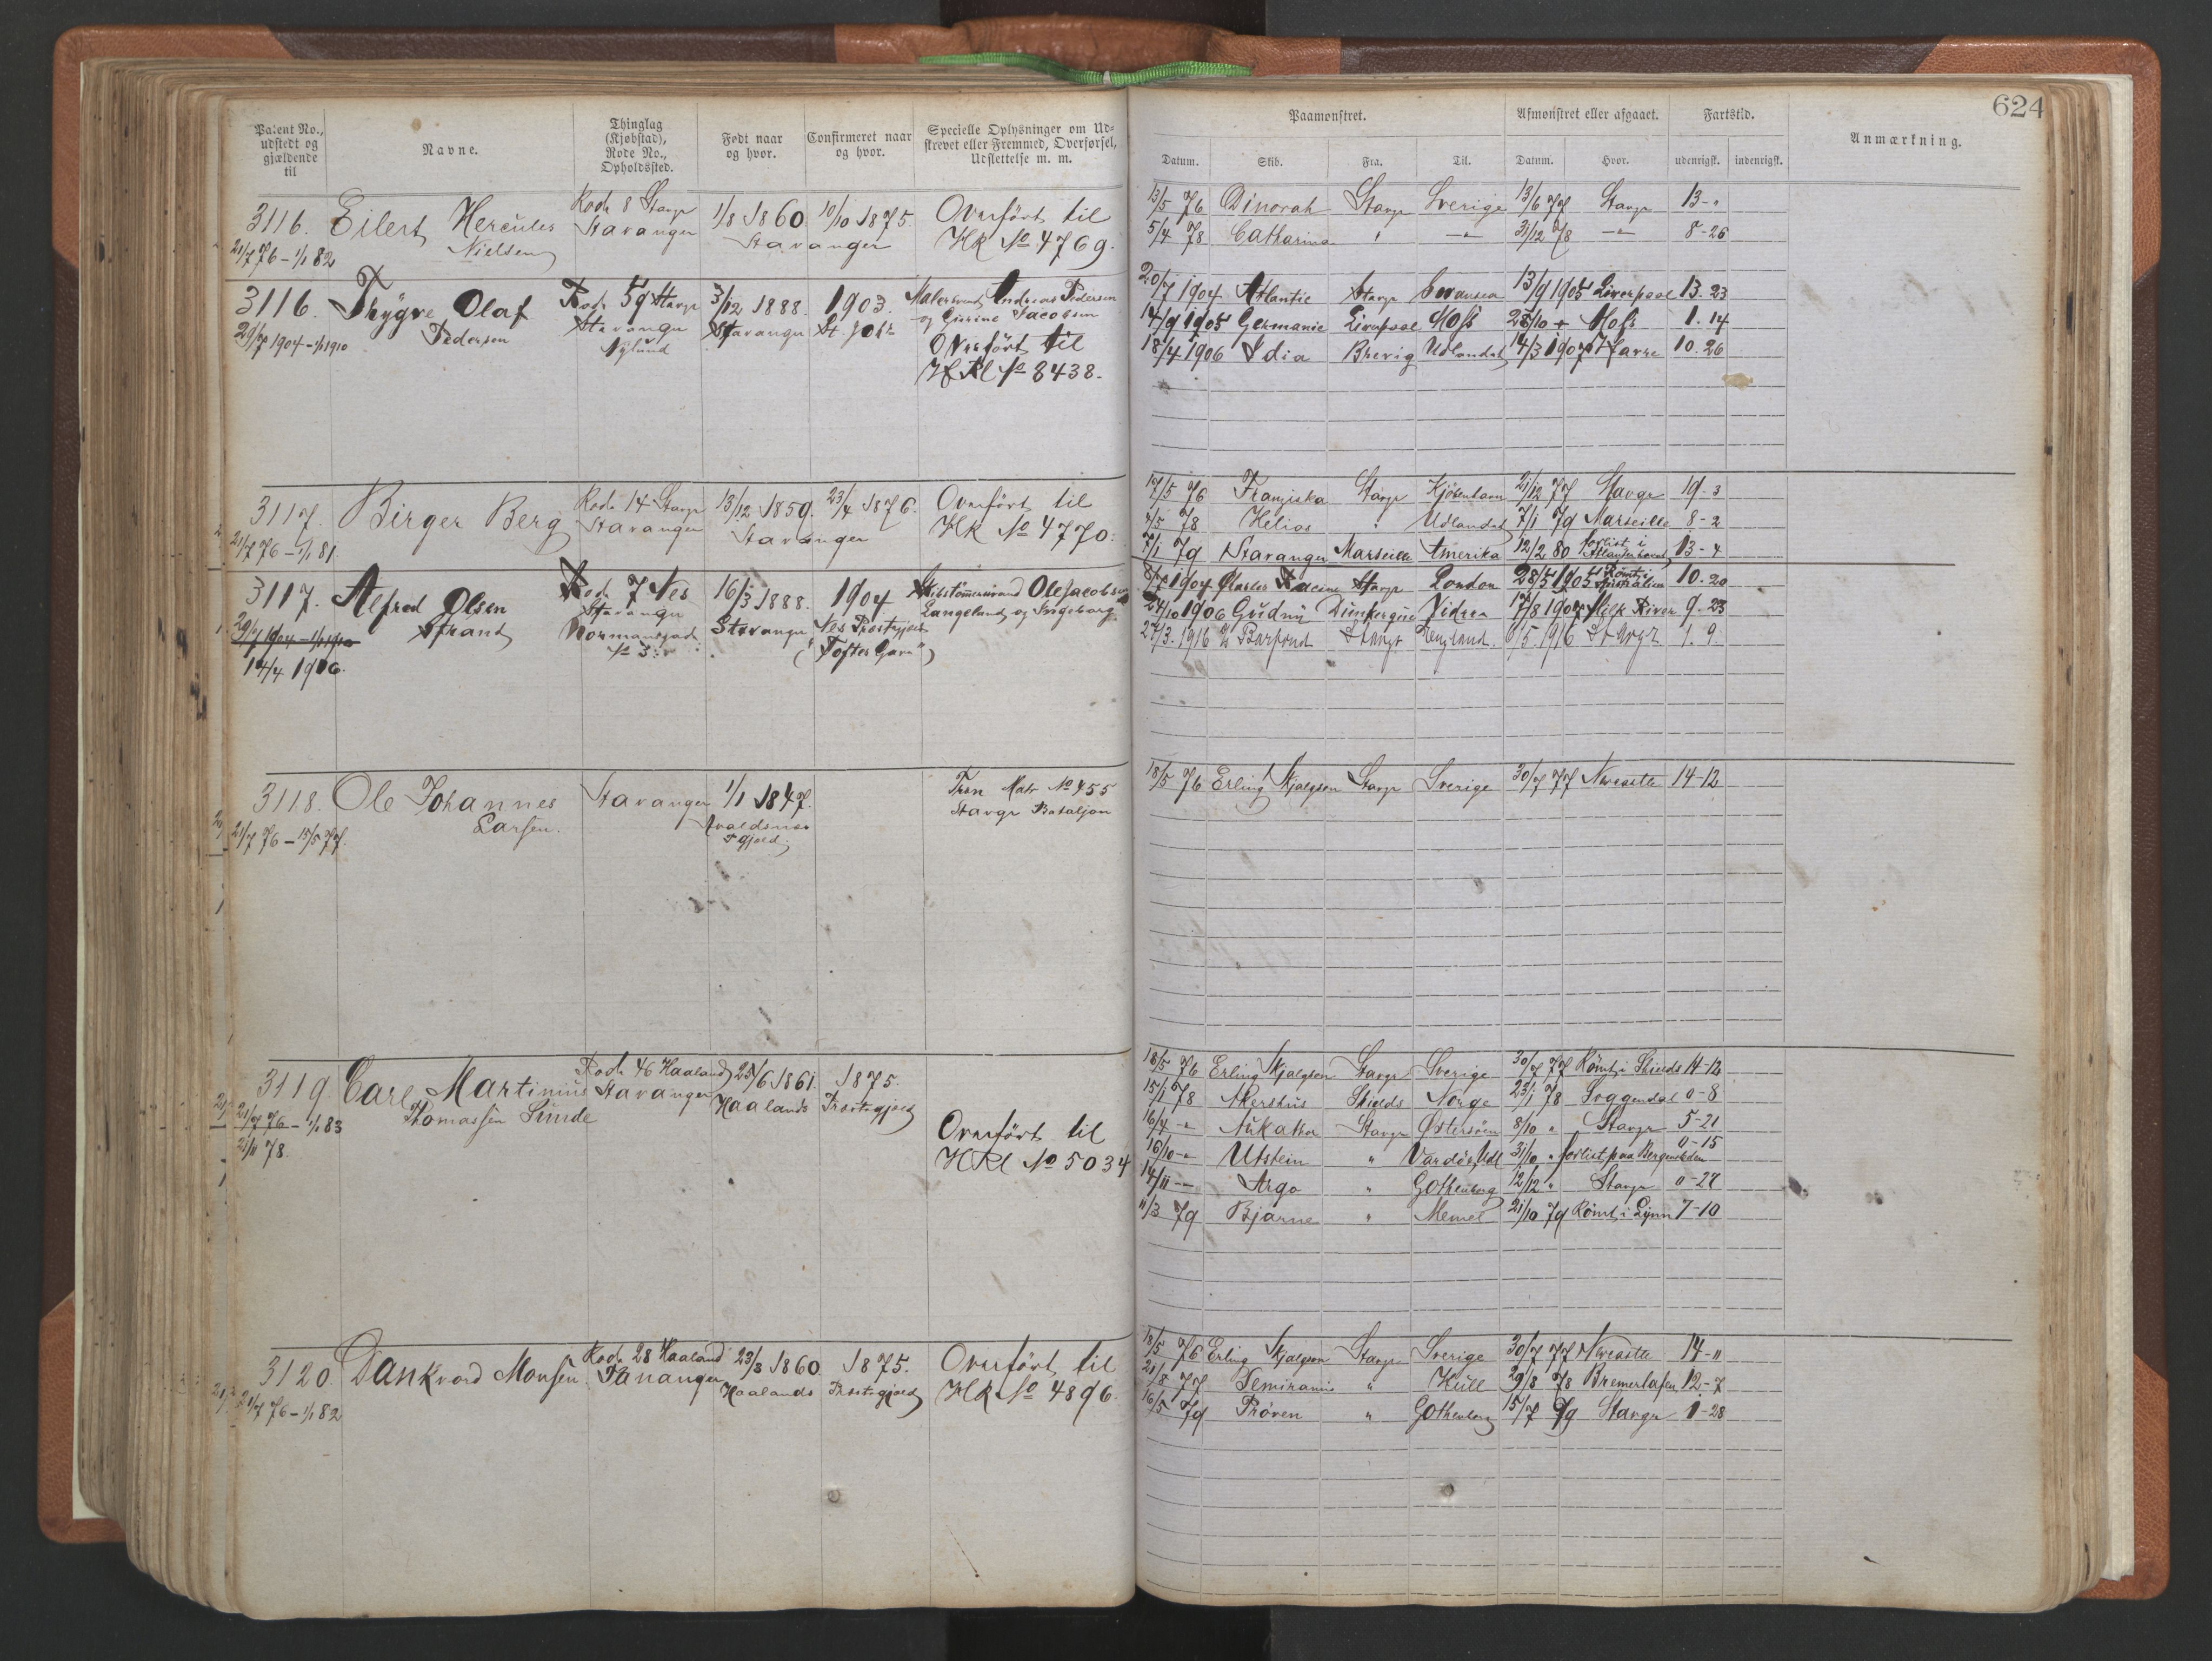 624
Patent No., udstedt og gjældende til
Navne.
Thinglag (Kjøbstad), Rode No., Opholdssted.
Født naar og hvor.
Confirmeret naar og hvor.
Specielle Oplysninger om Udskrevet eller Fremmed, Overførsel, Udslettelse m. m.
Paamønstret.
Afmønstret eller afgaaet.
Fartstid.
Anmærkning.
Datum. Skib. Fra. Til. Datum. Hvor. udenrigsk. indenrigsk.
3116. Eilert Hercules Nielsen
21/7 76 – 1/1 82
Rode 8 Stavgr Stavanger
1/8 1860 10/10 1875.
Stavanger
Overført til
HR No 4769.
13/5 76 Dinorah Stavgr Sverige 13/6 77 Stavgr 13-"
5/4 78 Catharina " —"— 31/12 78 —"— 8-26
3116. Thygve Olaf Pedersen
29/7 1904 – 1/1 1910
Rode 59 Stavgr
Stavanger
Nylund
3/12 1888. 1903.
Stavanger St. Petr
Malersvend Andreas Pedersen
og Gurine Jacobsen
Overført til
HRl No 8438.
20/7 1904 Atlantic Stavgr Swansea 13/9 1905 Liverpool 13. 23
14/9 1905 Germanic Liverpool Moss 28/10 " Moss 1. 14
18/4 1906 Edia Brevig Udlandet 14/3 1907 Havre 10. 26
3117. Birger Berg
21/7 76 – 1/1 81.
Rode 14 Stavgr
Stavanger
13/12 1859. 23/4 1876.
Stavanger
Overført til
HR No 4770.
17/5 76 Franziska Stavgr Kjøbenhavn 21/12 77 Stavgr 19-3
5/5 78 Helios " Udlandet 7/1 79 Marseille 8-2
7/1 79 Stavanger Marseille Amerika 12/2 80 forlist i Atlanterhavet 13-4
3117. Alfred Olsen Strand
29/7 1904 – 1/1 1910
14/4 1916.
Rode 7 Nes
Stavanger
Normansgade
No 3
16/3 1888. 1904
Stavanger Nes Prestegjeld
("Toftes Gave")
Skibstømmermand Ole Jacobsen
Langeland og Ingeborg
8/7 1904 Charles Racine Stavgr London 28/5 1905 Rømt i Australien 10. 20
24/10 1906 Gudny Dunkerque Vidsea 17/8 1907 Milk River 9. 23
27/3. 1916 Barfond Stavgr England. 6/5. 1916 Stavgr 1. 9.
3118. Ole Johannes Larsen.
21/7 76 – 15/5 77.
Stavanger 1/1 1847.
Avaldsnes
Pgjeld.
Tren Matr No 455
Stavgr Bataljon
18/5 76 Erling Skjalgson Stavgr Sverige 30/7 77 Newcastle 14-12
3119. Carl Martinius Thomassen Sunde
21/7 76 – 1/1 83
21/11 78.
Rode 46 Haaland
Stavanger
25/6 1861. 1875.
Haalands Præstegjeld
Overført til
HRl No 5034
18/5 76 Erling Skjalgson Stavgr Sverige 30/7 77 Rømt i Shields 14-12
15/1 78 Akershus Shields Norge 23/1 78 Soggendal 0-8
16/4 -"- Nukathor Stavgr Østersøen 8/10 " Stavgr 5-21
16/10 -"- Utstein " Vardø, Udl 31/10 " forlist paa Bergensleden 0-15
14/11 -"- Argo " Gothenborg 12/12 " Stavgr 0-28
11/3 79 Bjarne " Memel 21/10 79 Rømt i Lynn 7-10
3120. Dankvard Monsen
21/7 76 – 1/1 82
Rode 28 Haaland
Tananger
23/3 1860. 1875.
Haalands Præstegjeld
Overført til
HR No 4896.
18/5 76 Erling Skjalgson Stavgr Sverige 30/7 77 Newcastle 14-11
21/8 77 Semiramis " Hull 29/8 78 Bremerhafen 12-7
16/5 79 Prøven " Gothenborg 15/7 79 Stavgr 1-28